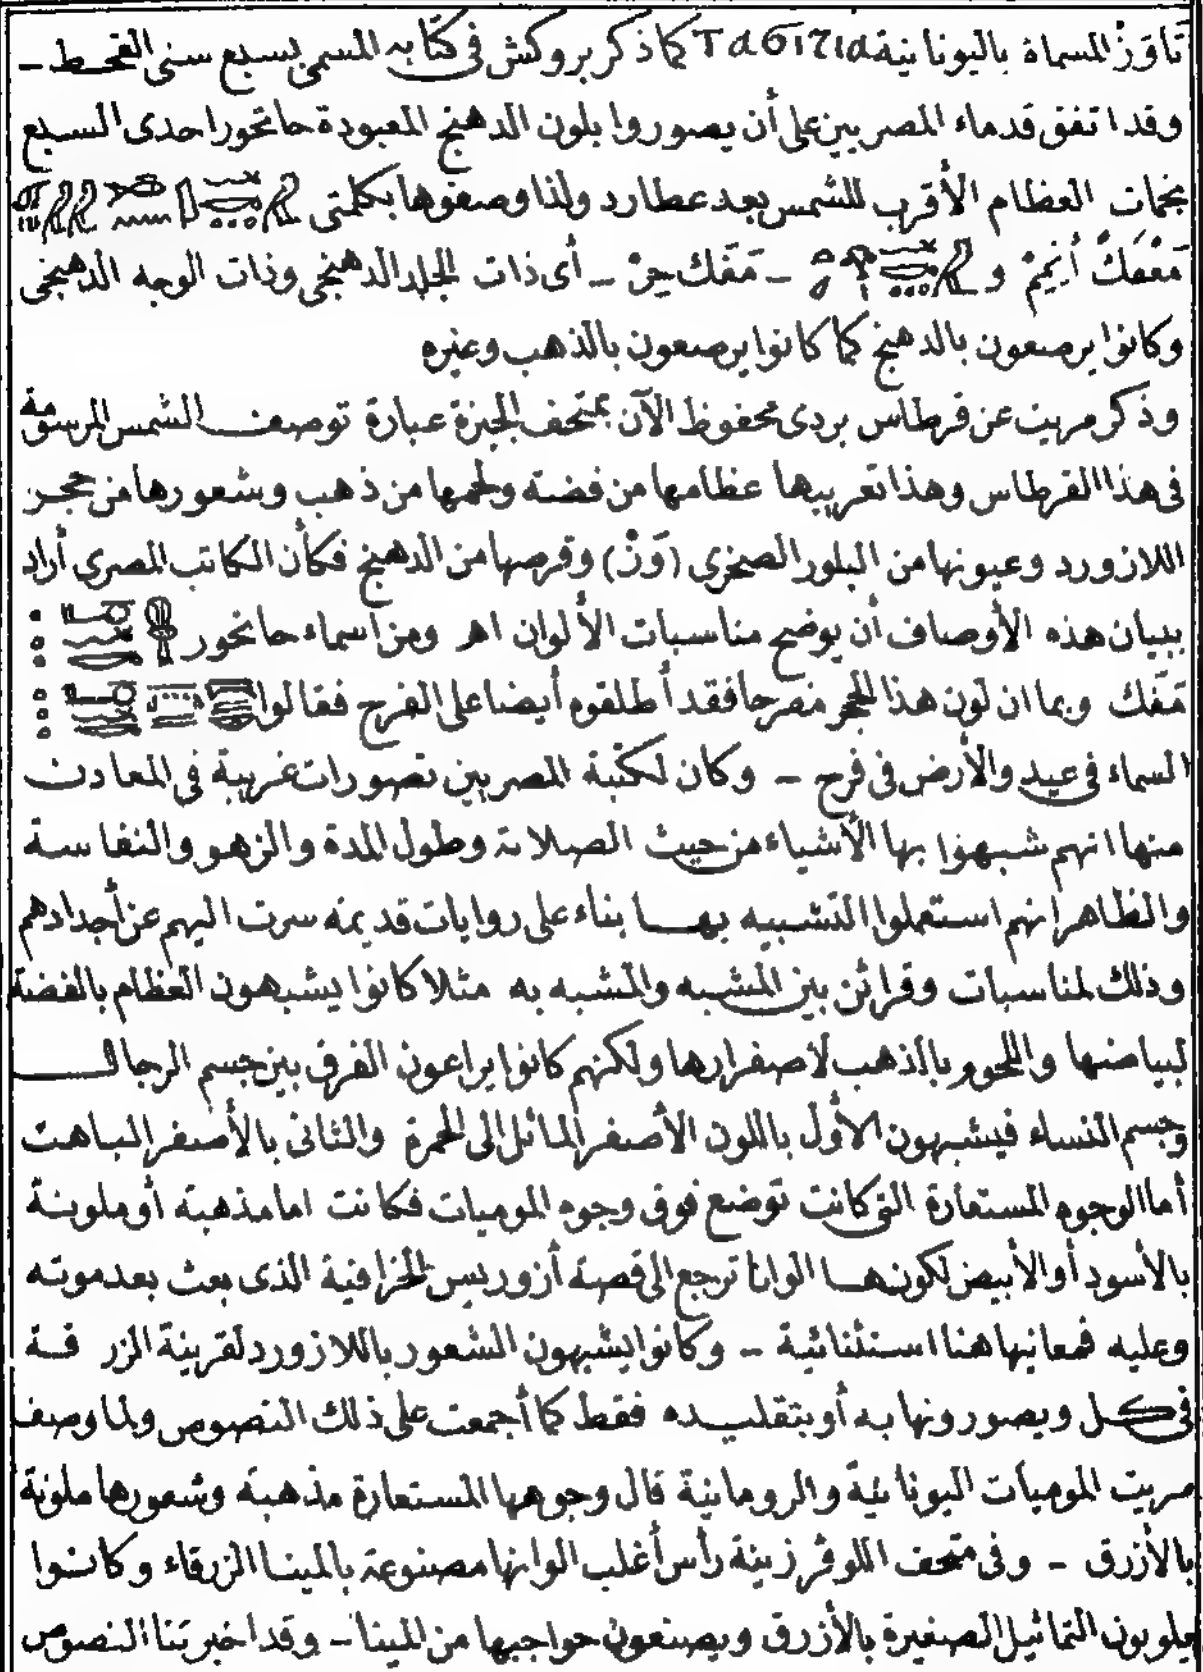 تَاوَزْ المسماة باليونانية Taбιτια كما ذكر بروكش في كتابه المسمى بسبع سنى القحط –
وقد اتفق قدماء المصريين على أن يصوروا بلون الدهنج المعبودة حاتحور احدى السبع
نجمات العظام الأقرب للشمس بعد عطارد ولذا وصفوها بكلمتى
مَعْفَكْ أَنِيِمْ و – مَفَك حِرْ – أى ذات الجلد الدهنجى وذات الوجه الدهنجى
وكانوا يرصعون بالدهنج كما كانوا يرصعون بالذهب وغيره
وذكر مريت عن قرطاس بردى محفوظ الآن بمتحف الجيزة عبارة توصف الشمس المرسومة
في هذا القرطاس وهذا تعريبها عظامها من فضة ولحمها من ذهب وشعورها من حجر
اللازورد وعيونها من البلور الصخرى (وَنْ) وقرصها من الدهنج فكأن الكاتب المصرى أراد
ببيان هذه الأوصاف أن يوضح مناسبات الألوان اهـ ومن اسماء حاتحور
مَفَك وبما ان لون هذا الحجر مفرحا فقد أطلقوه أيضا على الفرح فقالوا
السماء في عيد والأرض في فرح – وكان لكتبة المصريين تصورات غريبة في المعادن
منها انهم شبهوا بها الأشياء من حيث الصلابة وطول المدة والزهو والنفاسة
والظاهر انهم استعملوا التشبيه بهـا بناء على روايات قديمة سرت اليهم عن أجدادهم
وذلك لمناسبات وقرائن بين المشبه والمشبه به مثلا كانوا يشبهون العظام بالفضة
لبياضها واللحوم بالذهب لاصفرارها ولكنهم كانوا يراعون الفرق بين جسم الرجال
وجسم النساء فيشبهون الأول باللون الأصفر المائل الى الحمرة والثانى بالأصفر الباهت
أما الوجوه المستعارة التى كانت توضع فوق وجوه الموميات فكانت اما مذهبة أو ملونة
بالأسود أو الأبيض لكونهـا الوانا ترجع الى قصة أزوريس الخرافية الذى بعث بعد موته
وعليه فمعانيها هنا استثنائية – وكانوا يشبهون الشعور باللازورد لقرينة الزرقة
في كل ويصورونها به أو بتقليده فقط كما أجمعت على ذلك النصوص ولما وصف
مريت الموميات اليونانية والرومانية قال وجوهها المستعارة مذهبة وشعورها ملونة
بالأزرق – وفى متحف اللوڤر زينة رأس أغلب الوانها مصنوعة بالمينا الزرقاء وكانوا
يلونون التماثيل الصغيرة بالأزرق ويصنعون حواجبها من المينا – وقد اخبرتنا النصوص